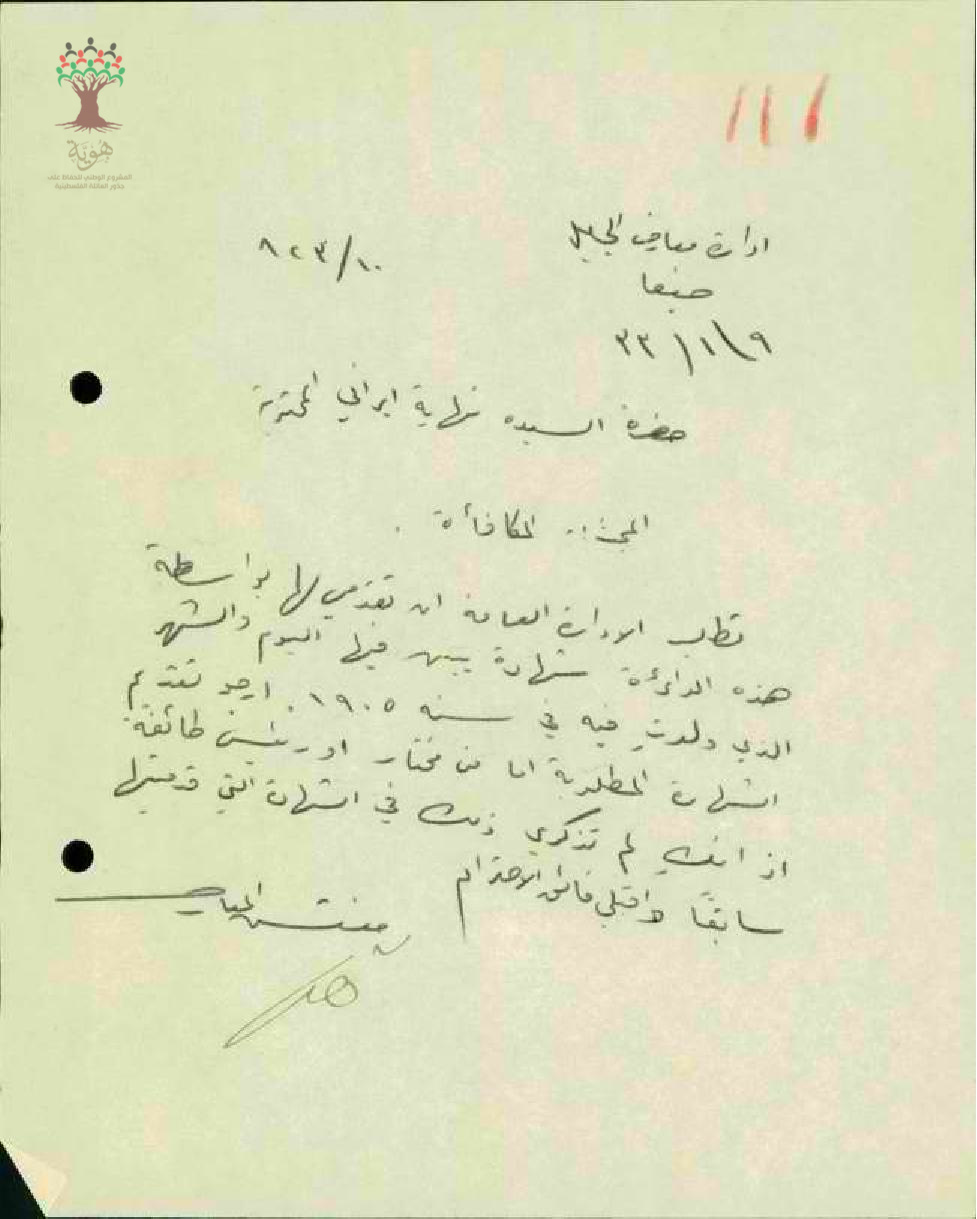 هوية
المشروع الوطني للحفاظ على
جذور العائلة الفلسطينية
١١١
ادارة معارف الجليل
صفد
٨٢٣/١٠
٩/١/٣٣
حضرة السيده نهاية ايراني المحترمة
المبحث :. المكافأة .
تطلب الادارة العامة ان تقدمي لها بواسطة
هذه الدائرة شهادة يبين فيها اليوم والشهر
الذي ولدتِ فيه في سنه ١٩٠٥. ارجو تقديم
الشهادة المطلوبة اما من مختار او رئيس طائفة
اذ انك لم تذكري ذلك في الشهادة التي قدمتيها
سابقاً واقبلي فائق الاحترام
مفتش المعارف